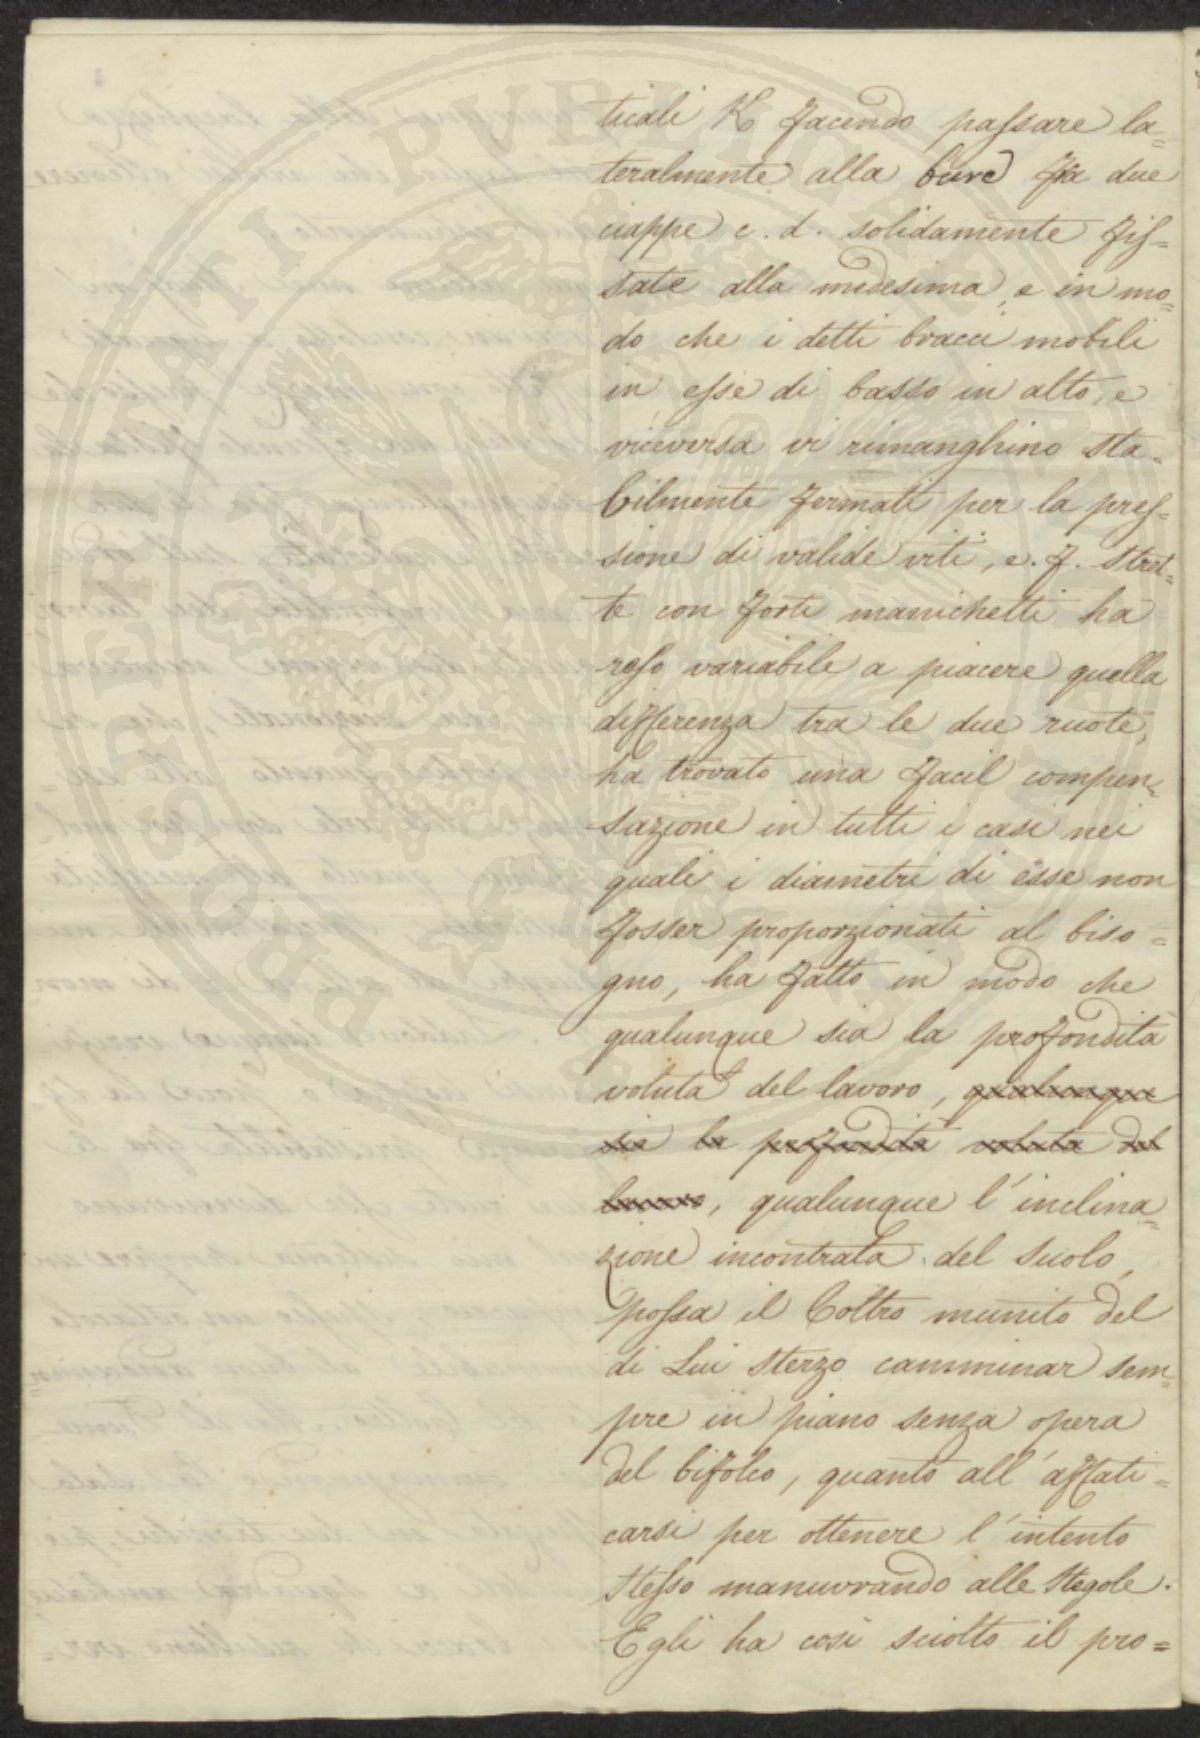 ticali K facendo passare la=
teralmente alla bure fra due
ciappe c. d. solidamente fis=
sate alla medesima, e in mo=
do che i detti bracci mobili
in esse di basso in alto, e
viceversa vi rimanghino sta=
bilmente fermati per la pres=
sione di valide viti, e. f. stret=
te con forti manichetti ha
reso variabile a piacere quella
differenza tra le due ruote,
ha trovato una facil compen=
sazione in tutti i casi nei
quali i diametri di esse non
fosser proporzionati al biso=
gno, ha fatto in modo che
qualunque sia la profondità
voluta del lavoro, qualunque
sia la profondità voluta del
lavoro, qualunque l'inclina=
zione incontrata del suolo,
possa il Coltro munito del
di Lui sterzo camminar sem=
pre in piano senza opera
del bifolco, quanto all'affati=
carsi per ottenere l'intento
stesso manuvrando alle stegole.
Egli ha così sciolto il pro=
PROSPERITATI PVBLICAE